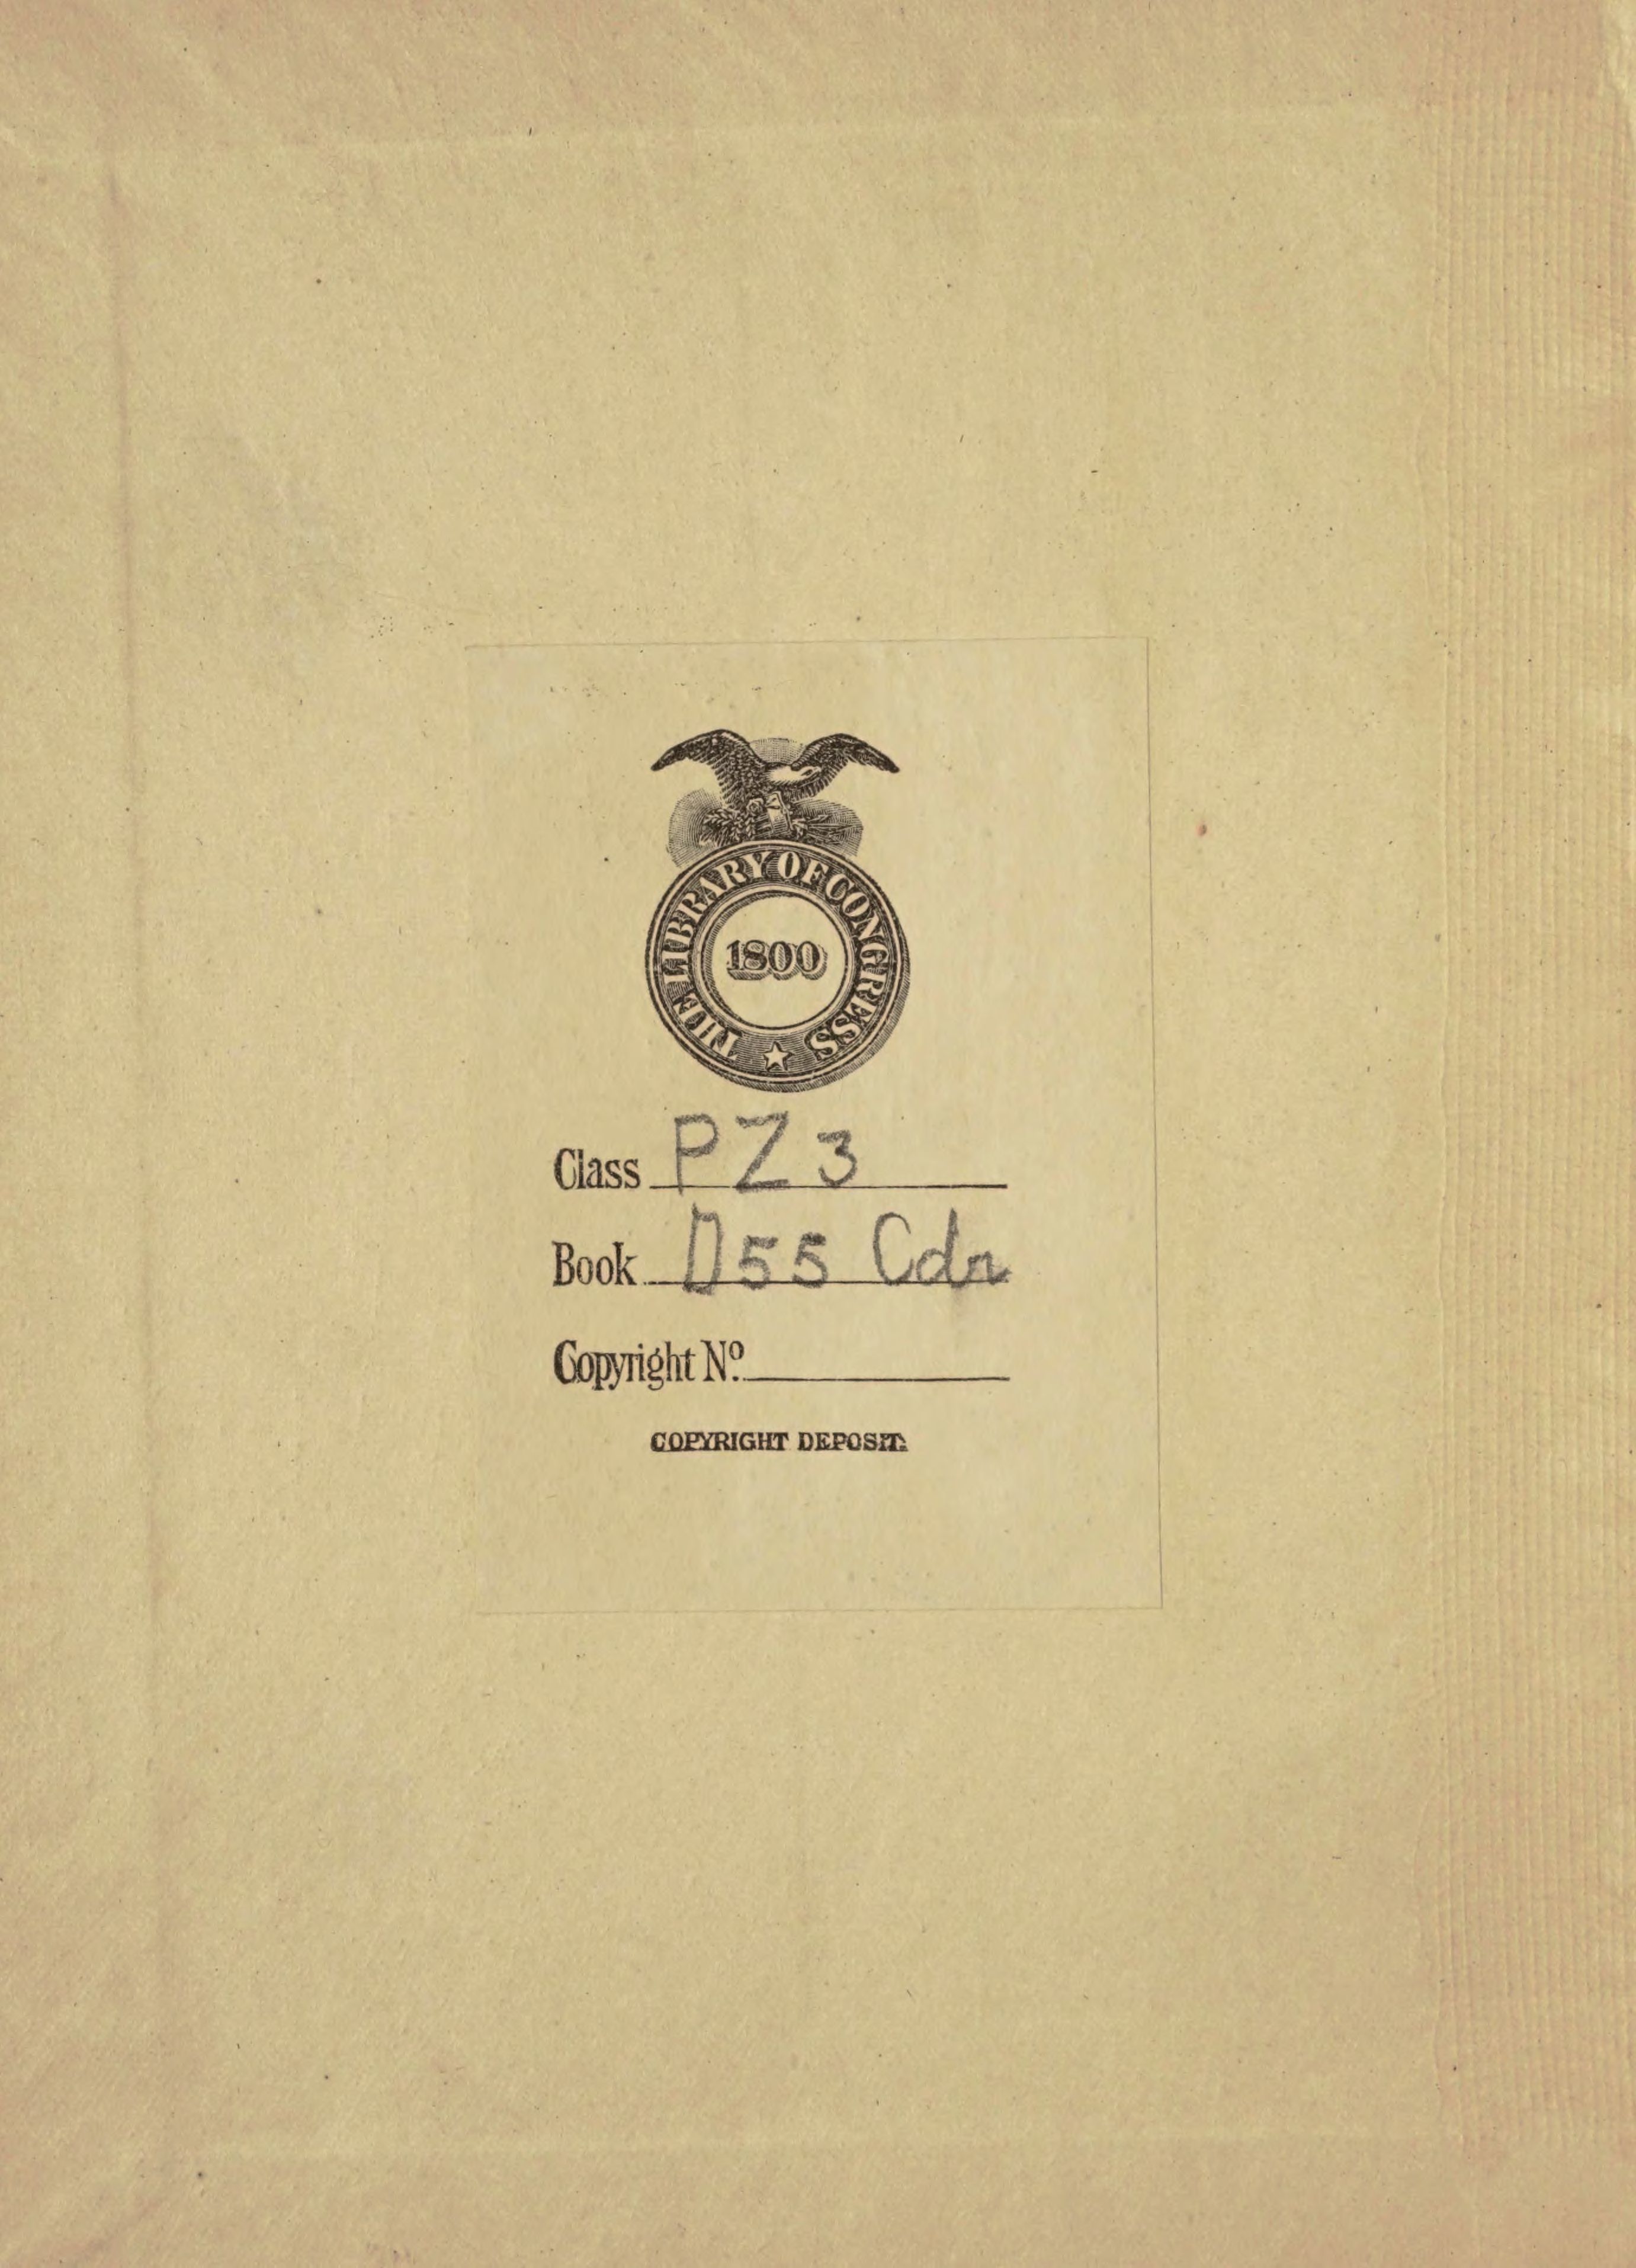 THE LIBRARY OF CONGRESS
1800
Class PZ3
Book D55 Cdr
Copyright No.
COPYRIGHT DEPOSIT.